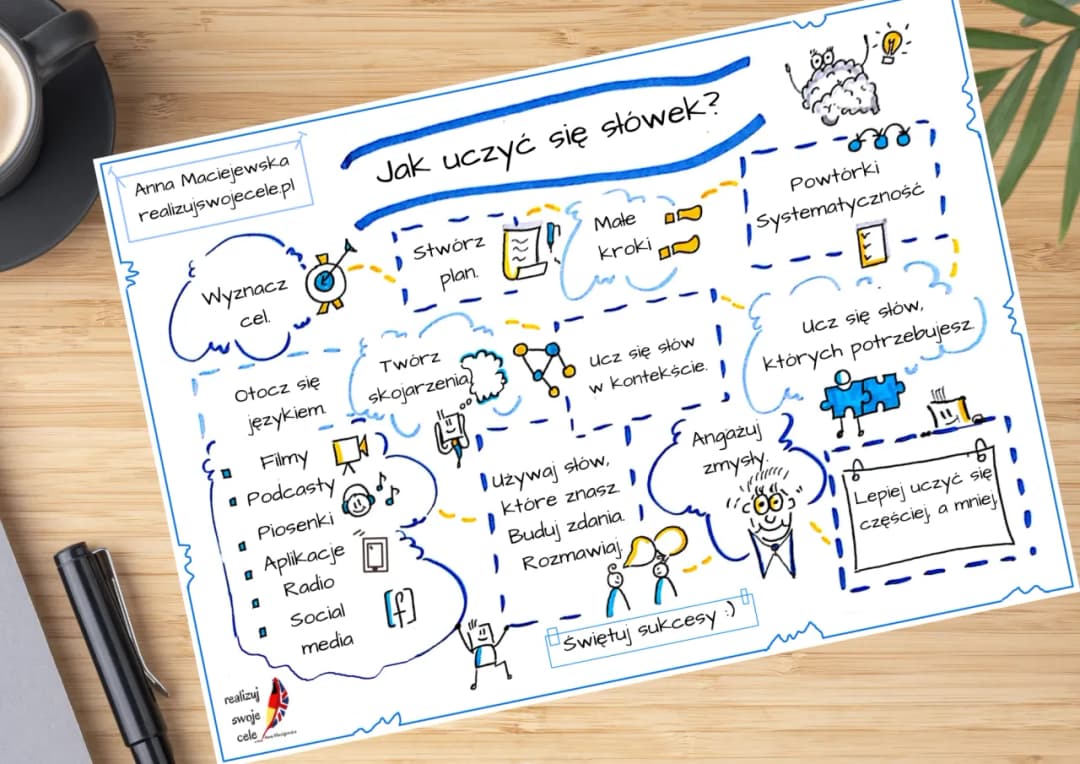 Anna Maciejewska
realizujswojecele.pl
Jak uczyć się słówek?
Wyznacz
cel.
Stwórz
plan.
Małe
kroki
Powtórki
Systematyczność
Otocz się
językiem.
Filmy
Podcasty
Piosenki
Aplikacje
Radio
Social
media
Twórz
skojarzenia
Ucz się słów
w kontekście.
Ucz się słów,
których potrzebujesz.
Używaj słów,
które znasz.
Buduj zdania.
Rozmawiaj.
Angażuj
zmysły.
Lepiej uczyć się
częściej, a mniej.
Świętuj sukcesy :)
realizuj
swoje
cele